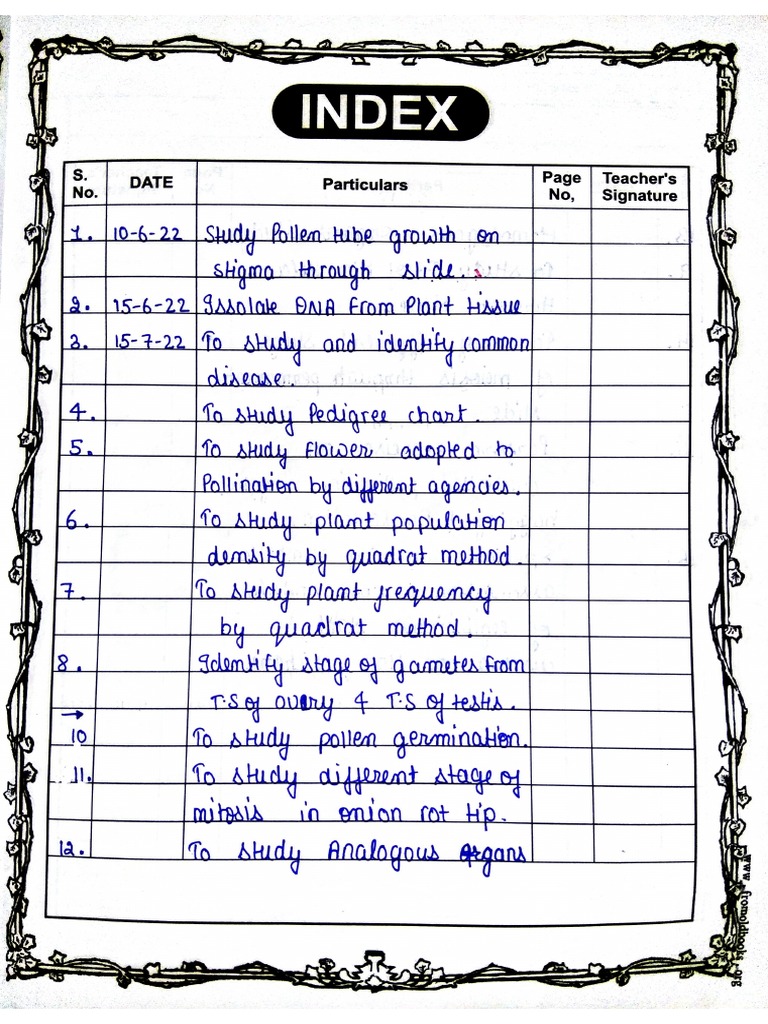 INDEX
S. No. DATE Particulars Page No, Teacher's Signature
1. 10-6-22 Study Pollen tube growth on
stigma through slide.
2. 15-6-22 Issolate DNA from Plant tissue
3. 15-7-22 To study and identify common
disease
4. To study Pedigree chart.
5. To study Flower adopted to
Pollination by different agencies.
6. To study plant population
density by quadrat method.
7. To study plant frequency
by quadrat method.
8. Identify stage of gametes from
T.S of ovary & T.S of testis.
→
10 To study pollen germination.
11. To study different stage of
mitosis in onion rot tip.
12. To study Analogous organs
www.fromoldbooks.org